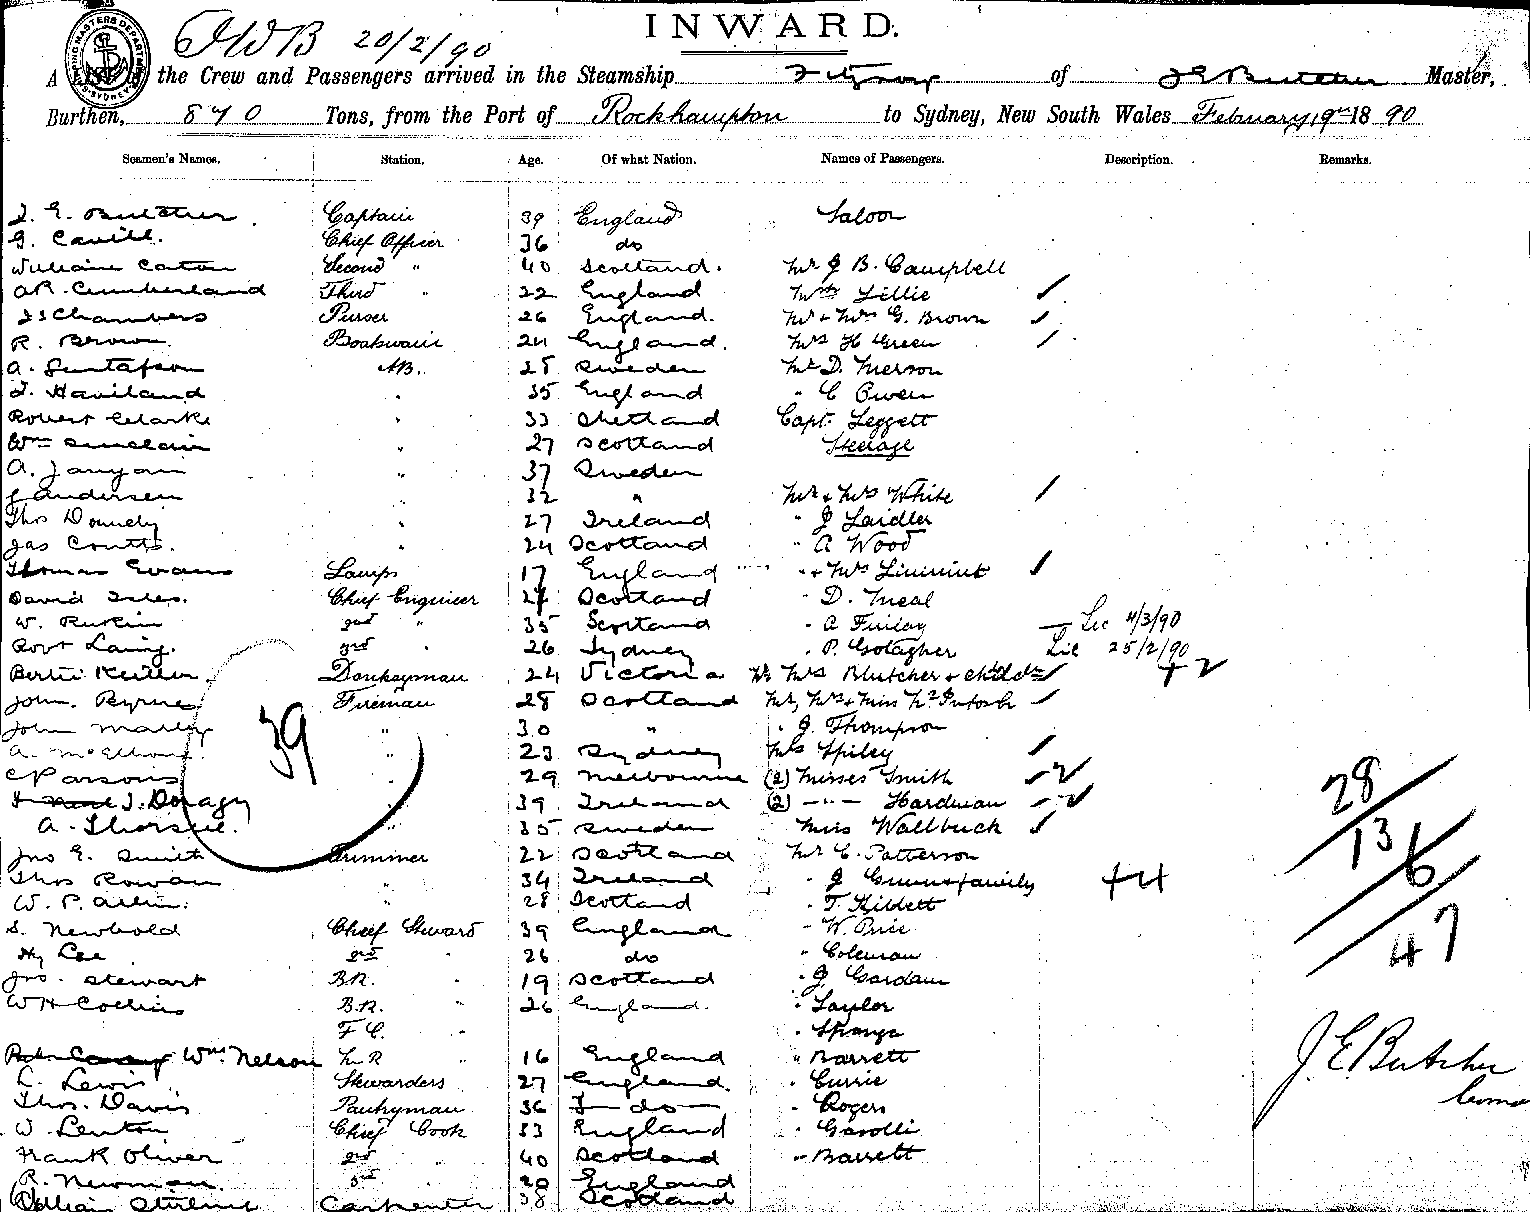 INWARD.
20/2/90
A the Crew and Passengers arrived in the Steamship Fitzroy of J E Butcher Master,
Burthen, 870 Tons, from the Port of Rockhampton to Sydney, New South Wales February 19th 1890
Seamen's Names. Station. Age. Of what Nation. Names of Passengers. Description. Remarks.
J. E. Butcher Captain 39 England Saloon
G. Cavill. Chief Officer 36 do
William Caton Second " 40 Scotland. Mr J B. Campbell
Cumberland Third " 22 England Lillie
Chambers Purser 26 England. Mr + Mrs G. Brown
R. Brown Boatswain 24 England. Mrs H Green
A. Gustafson AB. 28 Sweden Mr D. Merson
Haviland " 35 England " C Owen
Robert Clarke " 33 Shetland Capt. Leggett
Wm Sinclair " 27 Scotland Steerage
A. " 37 Sweden
J Andersen " 32 " Mr + Mrs White
Thos Donnely " 27 Ireland " J Laidler
Jas Coutts. " 24 Scotland " A Wood
Thomas Evans Lamps 17 England " + Mrs
David Chief Engineer Scotland " D. Neal
W. 2nd " 35 Scotland " A Finlay — Lic 4/3/90
Robt Laing. 3rd " 26 Sydney " P. Golagher Lic 25/2/90
Donkeyman 24 Victoria Mr Mrs Blutcher + child + 2
John Byrne Fireman 28 Scotland Mr, Mrs + Miss McIntosh
John " 30 " " J. Thompson
A. McElhone " 23 Sydney Mrs Spiley
C Parsons 39 " 29 Melbourne (2) Misses Smith 2
J. Doragy " 39 Ireland (2) — " — Hardman 2 28
A. " 35 Sweden Miss Wallbuck 13
Jno E. Smith Trimmer 22 Scotland Mr C. Patterson 6
Thos Rowan " 34 Ireland " J + family + 4
W. P. Allin. " 28 Scotland " T.
S. Newbold Chief Steward 39 England " W. Price 47
Hy Lee 2nd 26 do " Coleman
Jno. Stewart B.R. " 19 Scotland " J. Gardam
W H Collins B.R. " 26 England. " Taylor
F C. " " Strange
Wm Nelson " 16 England " Barrett
L. Lewis Stewardess 27 England. " Currie
Thos. Davis Pantryman 36 — do — " Rogers
W. Lenton Chief Cook 33 England "
Frank Oliver 2nd " 40 Scotland " Barrett
R. Newman. 3rd 20 England
William Stirling Carpenter 38 Scotland
J. E. Butcher